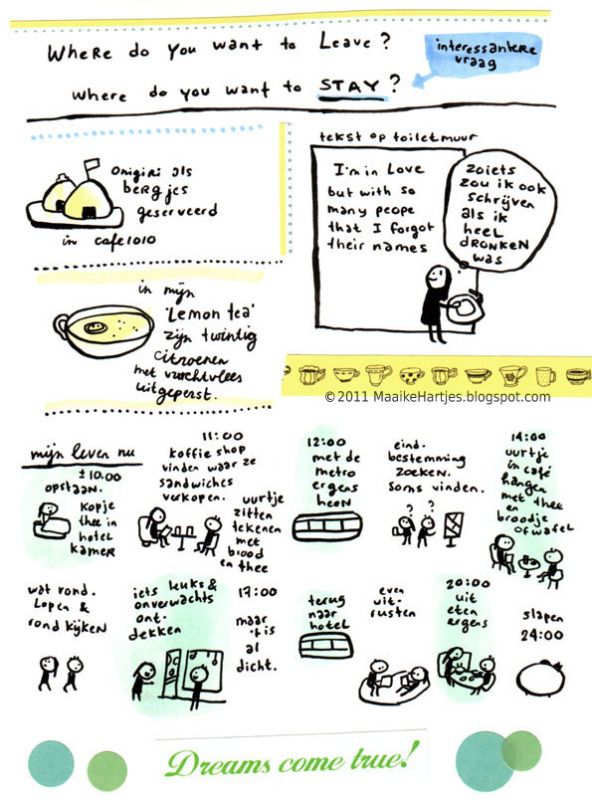 Where do you want to Leave?
where do you want to STAY?
interessantere
vraag
Onigiri als
bergjes
geserveerd
in cafe 1010
tekst op toiletmuur
I'm in Love
but with so
many peope
that I forgot
their names
zoiets
zou ik ook
schrijven
als ik
heel
dronken
was
in mijn
'Lemon tea'
zijn twintig
citroenen
met vruchtvlees
uitgeperst.
©2011 MaaikeHartjes.blogspot.com
mijn leven nu
± 10.00
opstaan.
kopje
thee in
hotel
kamer
11:00
koffie shop
vinden waar ze
sandwiches
verkopen.
uurtje
zitten
tekenen
met
brood
en thee
12:00
met de
metro
ergens
heen
eind.
bestemming
zoeken.
soms vinden.
? ?
14:00
uurtje
in café
hangen
met thee
en
broodje
of wafel
wat rond.
lopen &
rond kijken
iets leuks &
onverwachts
ont-
dekken
17:00
maar
't is
al
dicht.
terug
naar
hotel
even
uit-
rusten
20:00
uit
eten
ergens
slapen
24:00
Dreams come true!